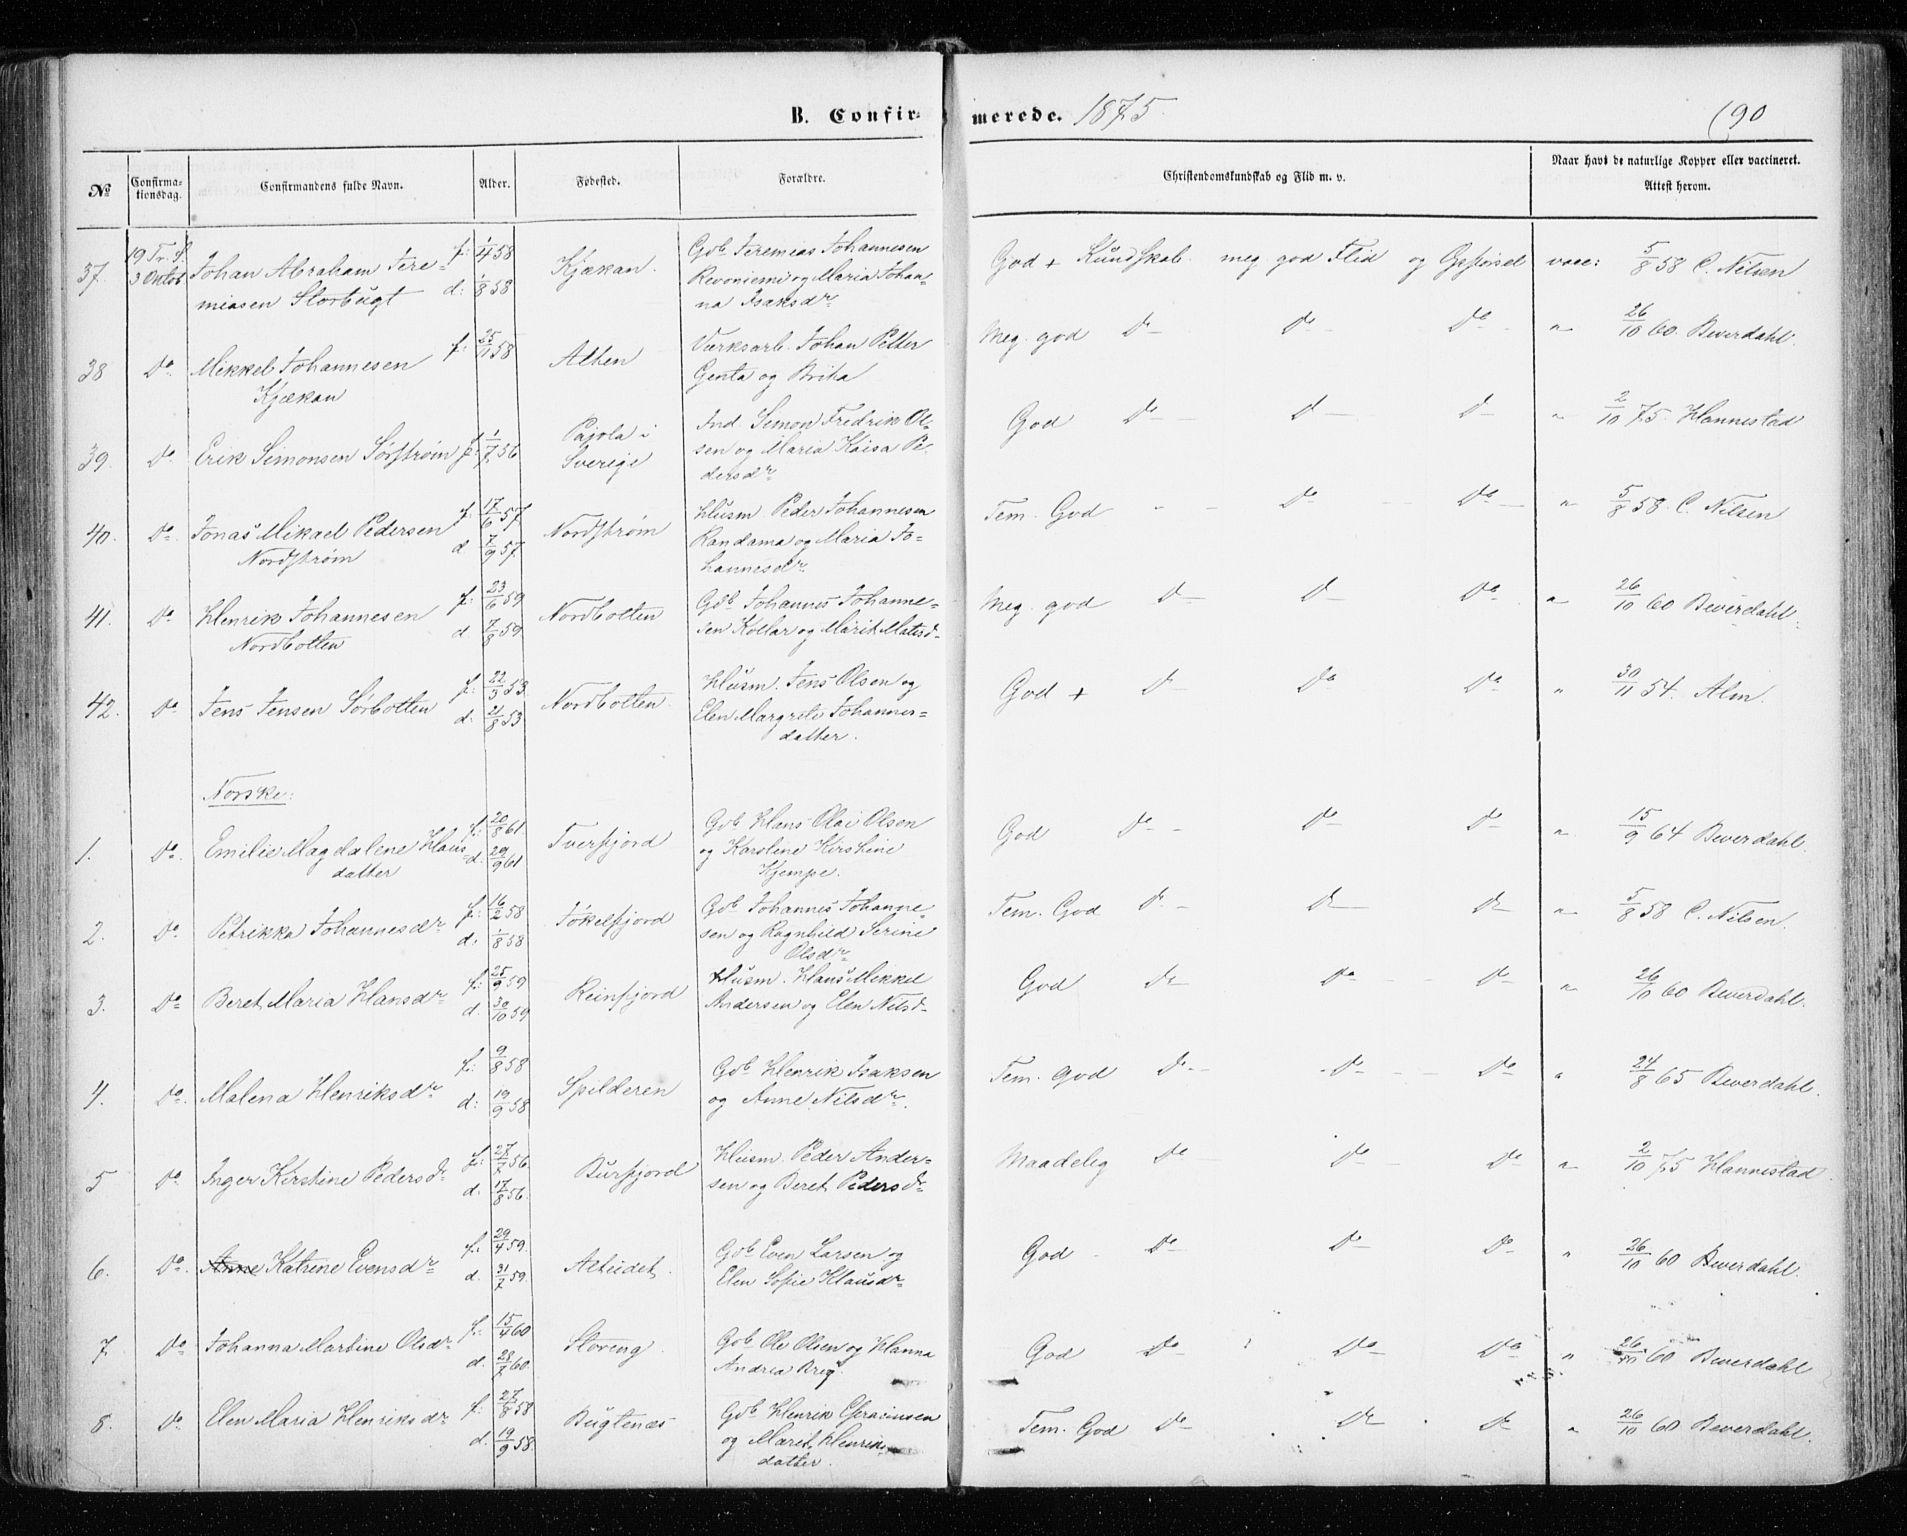 B. Confirmerede. 1875. 190
№ Confirmationsdag. Confirmandens fulde Navn. Alder. Fødested. Forældre. Christendomskundskab og Flid m. v. Naar havt de naturlige Kopper eller vaccineret. Attest herom.
37. 19 Tr. S. 3 Oktob Johan Abraham Jeremiasen Storbugt f: 1/4 58 d: 1/8 58 Kjækan. Gdb Jeremias Johannesen Revoniemi og Maria Johanna Isaksdr God + Kundskab. meg god Flid og Opførsel vacc: 5/8 58 C. Nilsen
38 Do. Mikkel Johannesen Kjækan f: 25/11 58 Alten Værksarb. Johan Petter Genta og Brita Meg. god Do Do Do " 26/10 60. Beverdahl.
39. Do. Erik Simonsen Sørstrøm f: 1/7 56 Pajola i Sverige Ind Simon Fredrik Olsen og Maria Kaisa Pedersdr God Do D D " 2/10 75 Hannestad
40. Do. Jonas Mikael Pedersen Nordstrøm f 17/6 57 d 7/9 57 Nordstrøm Husm. Peder Johannesen Randama og Maria Johannesdr. Tem. God - - Do Do " 5/8 58. C. Nilsen
41. Do. Henrik Johannesen Nordbotten f: 23/6 59 d 7/8 59 Nordbotten Gdb Johannes Johannesen Kollar og Marit Matsd Meg. god D D Do " 26/10 60 Beverdahl.
42. Do Jens Jensen Sørbotten f: 22/3 53. d. 21/8 53 Nordbotten. Husm. Jens Olsen og Elen Margrete Johannesdatter. God + D Do Do " 30/11 54. Alm.
Norske:
1. Do. Emilie Magdalene Hansdatter f: 20/8 61 d: 29/9 61 Tverfjord Gdb Hans Olai Olsen og Karoline Kirstine Kjempe. God Do Do Do " 15/9 64 Beverdahl.
2. Do. Petrikka Johannesdr f: 16/2 58 d. 1/8 58 Jøkelfjord Gdb Johannes Johannesen og Ragnhild Serine Olsdr Tem. God D D D " 5/8 58 C. Nilsen.
3. Do Beret Maria Hansdr f: 25/9 59 d. 30/10 59 Reinfjord Husm. Hans Mekkel Andersen og Elen Nilsd God D Do D " 26/10 60 Beverdahl.
4. Do. Malena Henriksdr f: 9/8 58 d: 19/9 58 Spilderen Gdb Henrik Isaksen og Anne Nilsdr. Tem. god Do Do Do " 24/8 65 Beverdahl.
5 Do. Inger Kirstine Pedersdr f: 27/7 56. d. 17/8 56. Burfjord Husm. Peder Andersen og Beret Pedersdr Maadelig Do Do Do " 2/10 75 Hannestad
6. Do. Anne Katrine Evensdr f: 29/4 59. d. 31/7 59. Alteidet. Gdb Even Larsen og Elen Sofie Klausdr God Do Do Do " 26/10 60 Beverdahl.
7. Do Johanna Martine Olsdr f: 15/4 60 d. 28/7 60. Storeng. Gdb Ole Olsen og Hanna Andrea God Do Do Do " 26/10 60 Beverdahl
8. Do Elen Maria Henriksdr f: 27/8 58 d. 19/9 58. Bugtenæs Gdb Henrik Eferaimsen og Maret Henriksdatter. Tem. God Do D D " 26/10 60 Beverdahl.